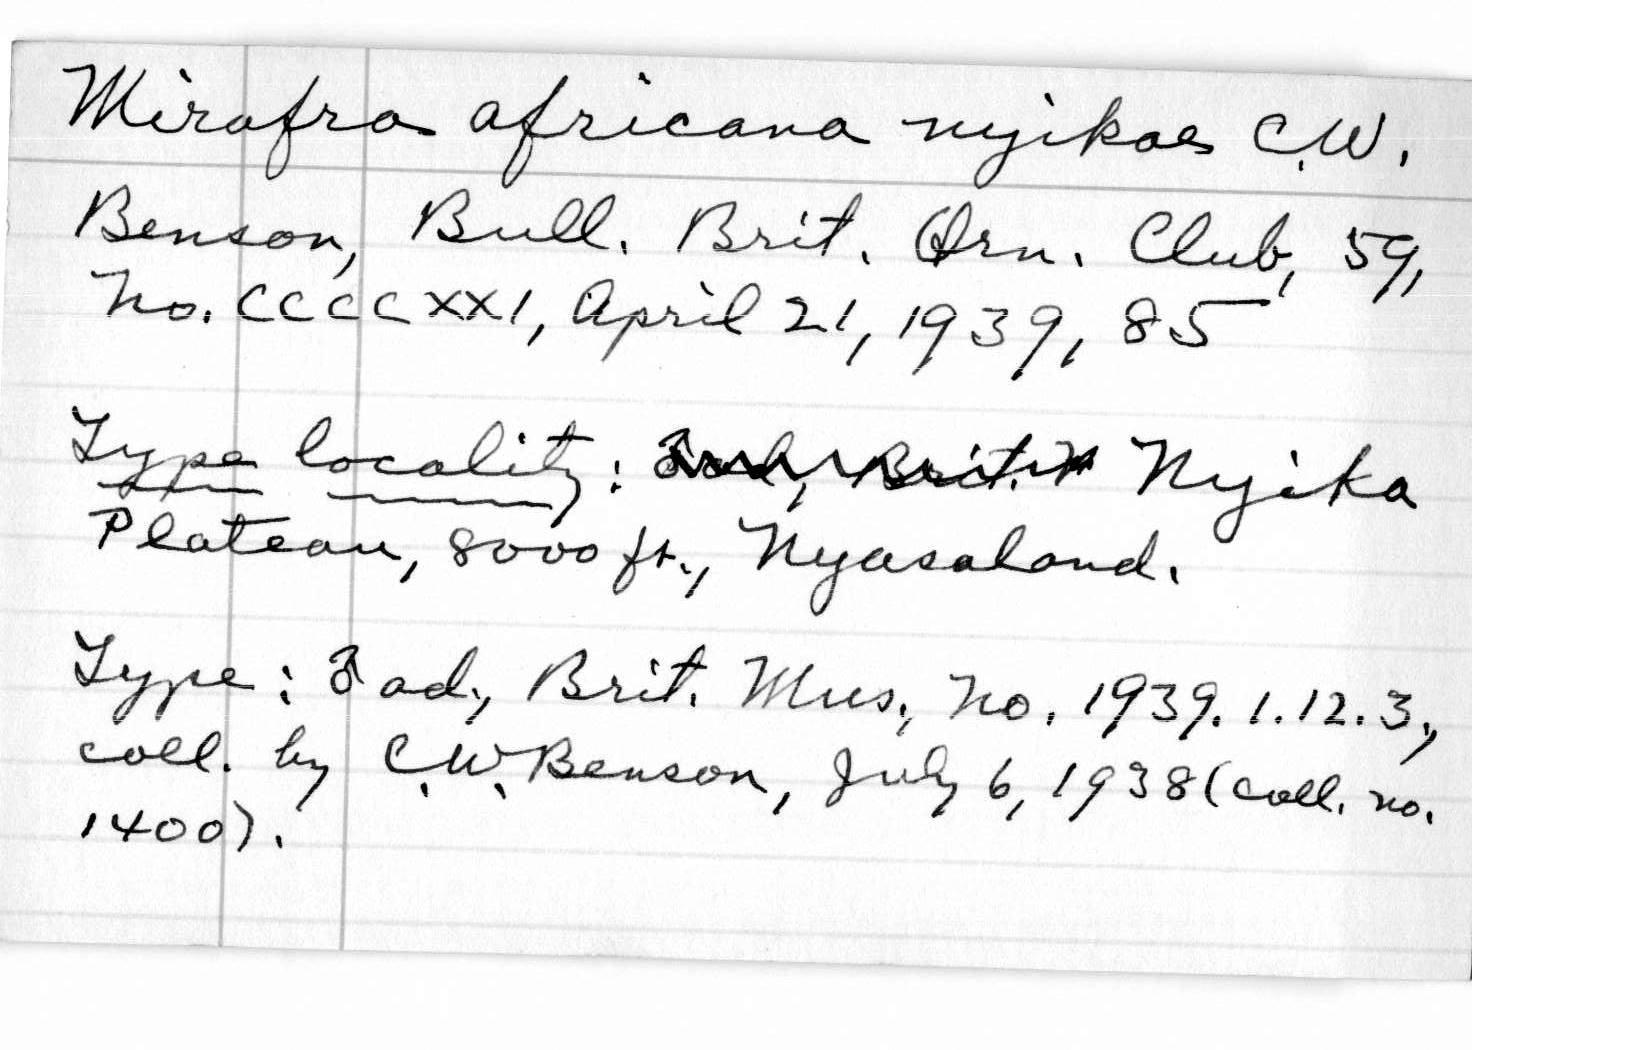 Mirafra africana nyikae C.W.
Benson, Bull. Brit. Orn. Club, 59,
No. CCCCXXI, April 21, 1939, 85
Type locality: ♂ ad., Brit. M Nyika
Plateau, 8000 ft., Nyasaland.
Type: ♂ ad., Brit. Mus., No. 1939.1.12.3.,
coll. by C.W. Benson, July 6, 1938 (coll. no.
1400).